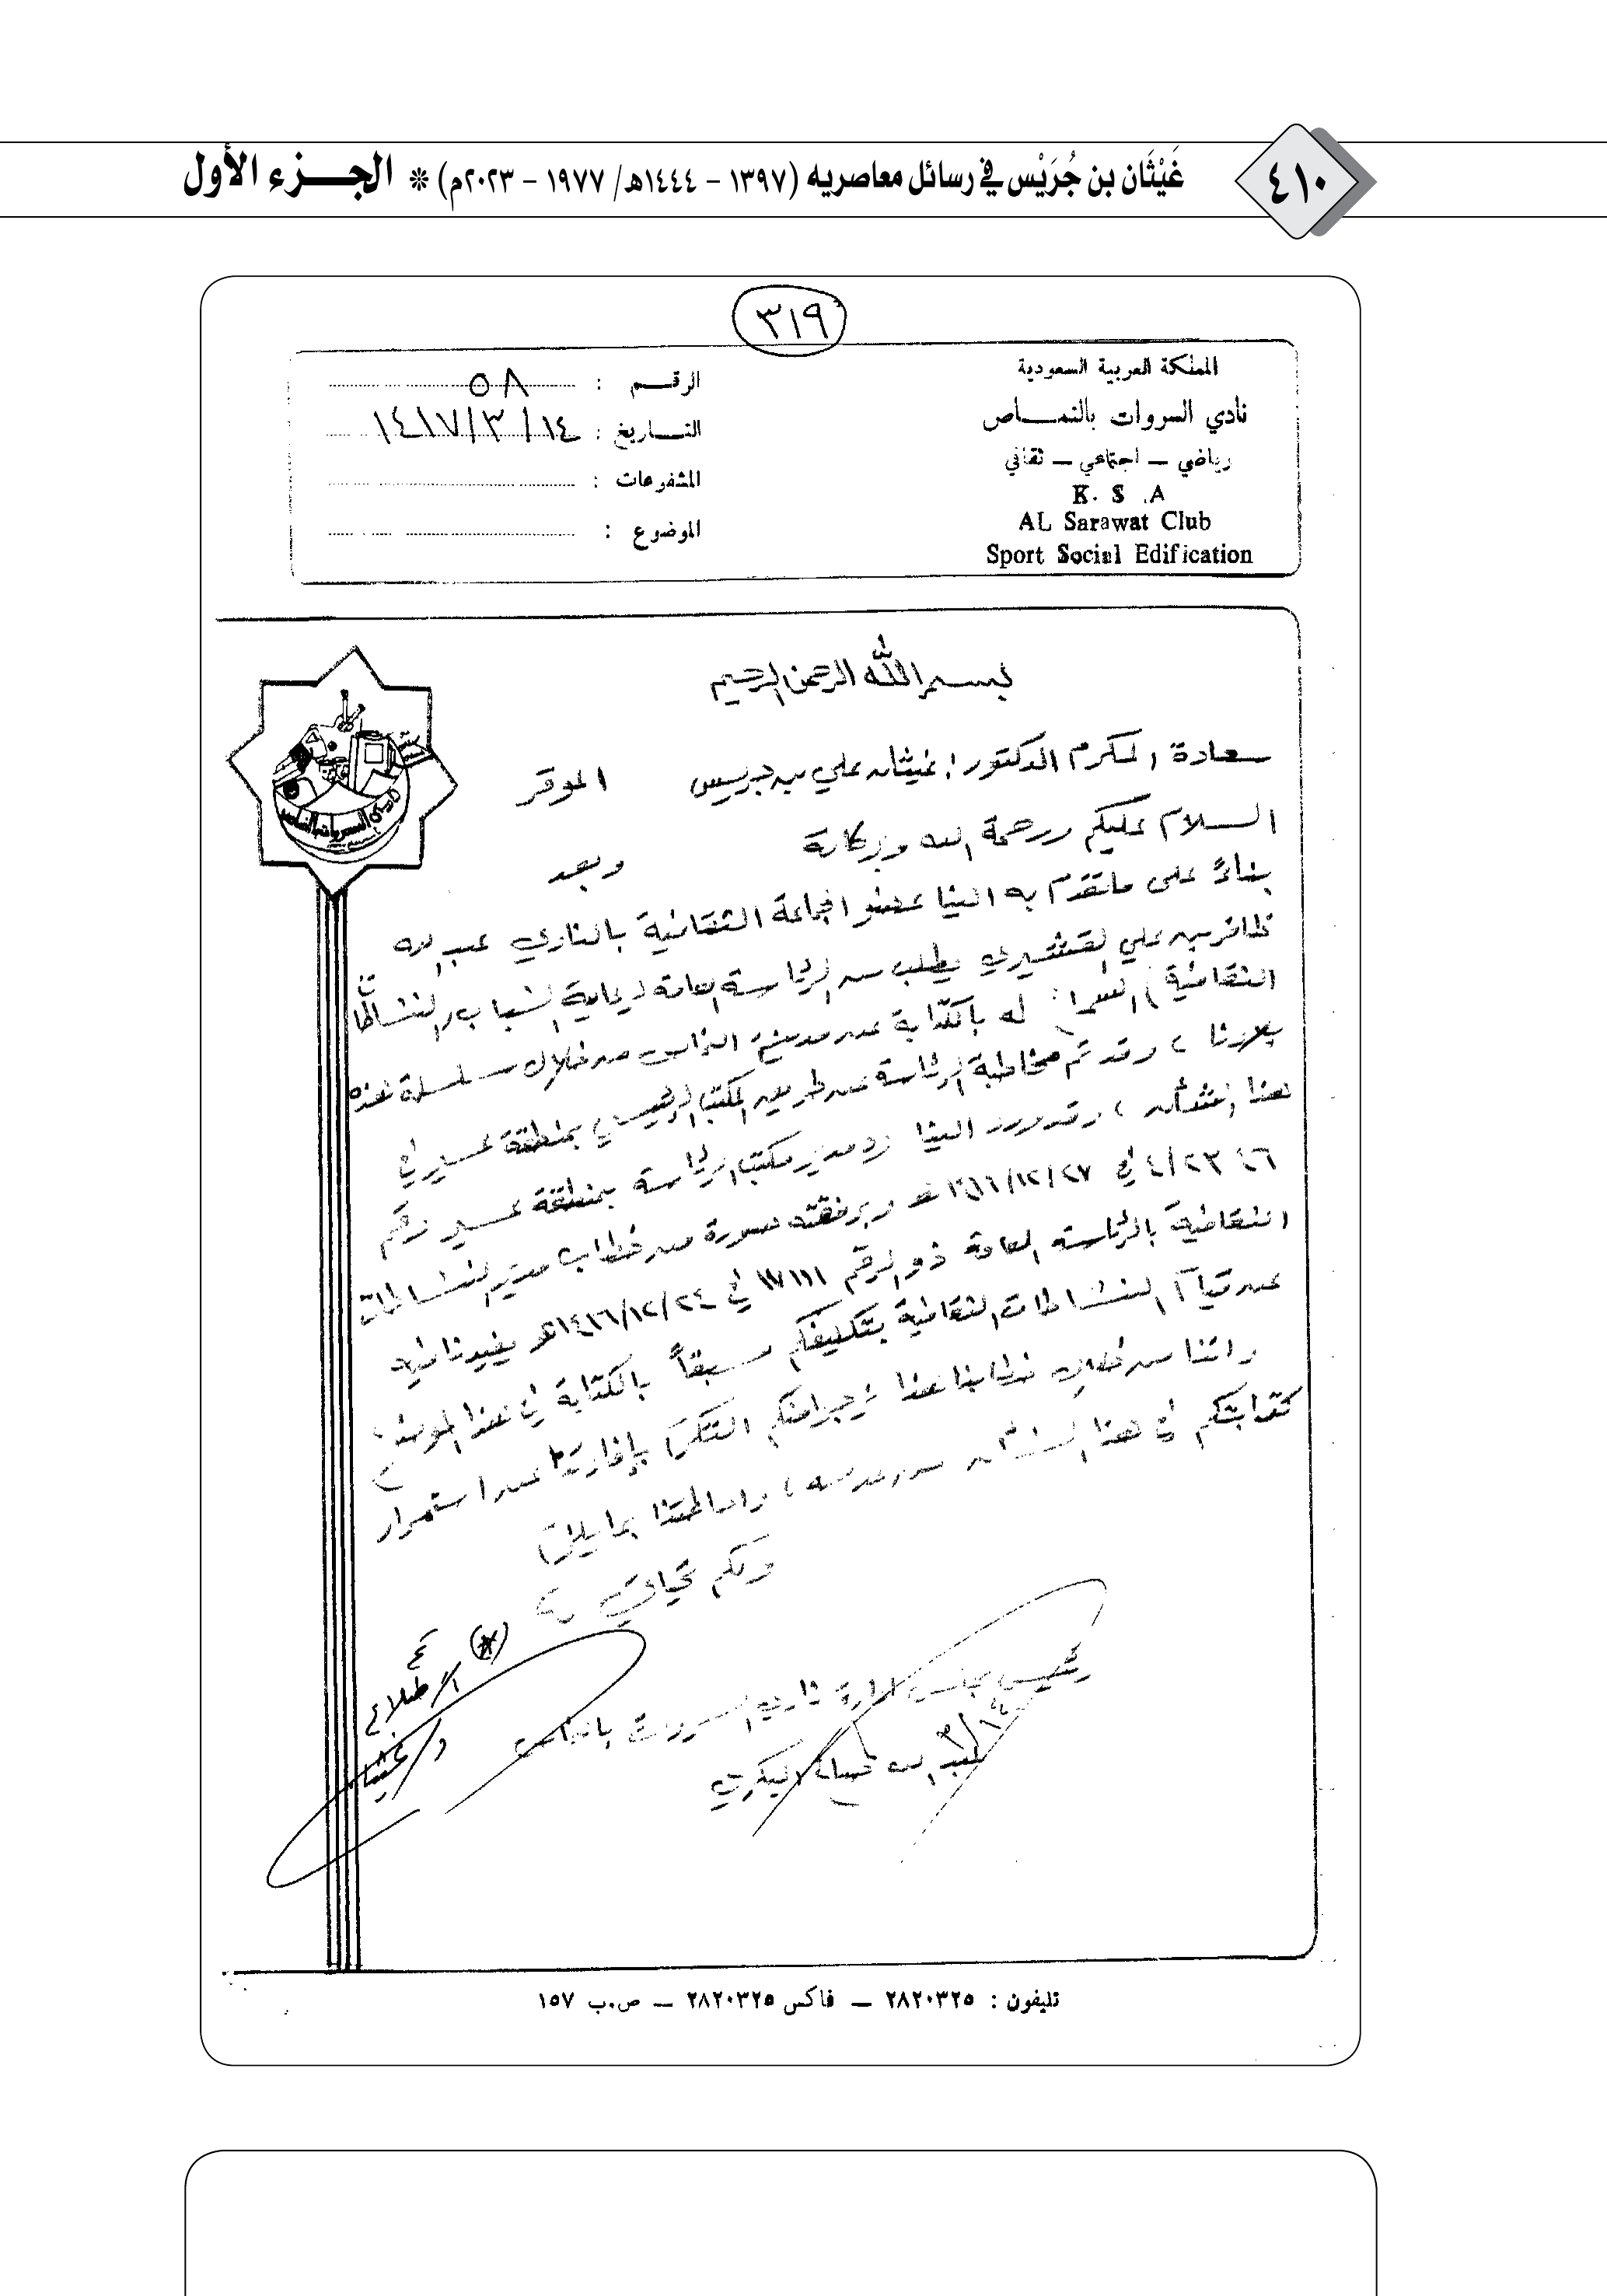 ٤١٠
غَيْثَان بن جُرَيْس في رسائل معاصريه (١٣٩٧ - ١٤٤٤هـ/ ١٩٧٧ - ٢٠٢٣م) * الجـــزء الأول
٣١٩
المملكة العربية السعودية
نادي السروات بالنمـــاص
رياضي – اجتماعي – ثقافي
K. S .A
AL Sarawat Club
Sport Social Edification
الرقـــم : ٥٨
التـــاريخ : ١٤١٧/٣/١٤
المشفوعات :
الموضوع :
بسم الله الرحمن الرحيم
سعادة المكرم الدكتور / غيثان علي بن جريس الموقر
السلام عليكم ورحمة الله وبركاته
وبعد
بناءً على ماتقدم به الينا عضو الجماعة الثقافية بالنادي عبدالله
ظافر بن علي القشيري بطلب من الرئاسة العامة لرعاية الشباب (النشاطات
الثقافية) السماح له بالكتابة عن مدينة النماص من خلال سلسلة هذه
بلادنا ، وقد تم مخاطبة الرئاسة عن طريق المكتب الرئيسي بمنطقة عسير في
هذا الشأن ، وقد ورد الينا رد مدير مكتب الرئاسة بمنطقة عسير رقم
في ١٤١٦/١٢/٢٧هـ وبرفقته صورة من خطاب مدير النشاطات
الثقافية بالرئاسة العامة ذو الرقم في ١٤١٦/١٢/٢٤هـ يفيدنا فيه
عن قيام النشاطات الثقافية بتكليفكم مسبقاً بالكتابة في هذا الموضوع
واننا من خلال خطابنا هذا نرجوا منكم التكرم بإفادتنا عن استمرار
كتابتكم في هذا الشأن من عدمه ، واحاطتنا بما يلزم
ولكم تحياتي
رئيس مجلس ادارة نادي السروات بالنماص
عبدالله البكري
٣/١٤
(*)
الاطلاع
د/ غيثان
تليفون : ٢٨٢٠٣٢٥ – فاكس ٢٨٢٠٣٢٥ – ص.ب ١٥٧